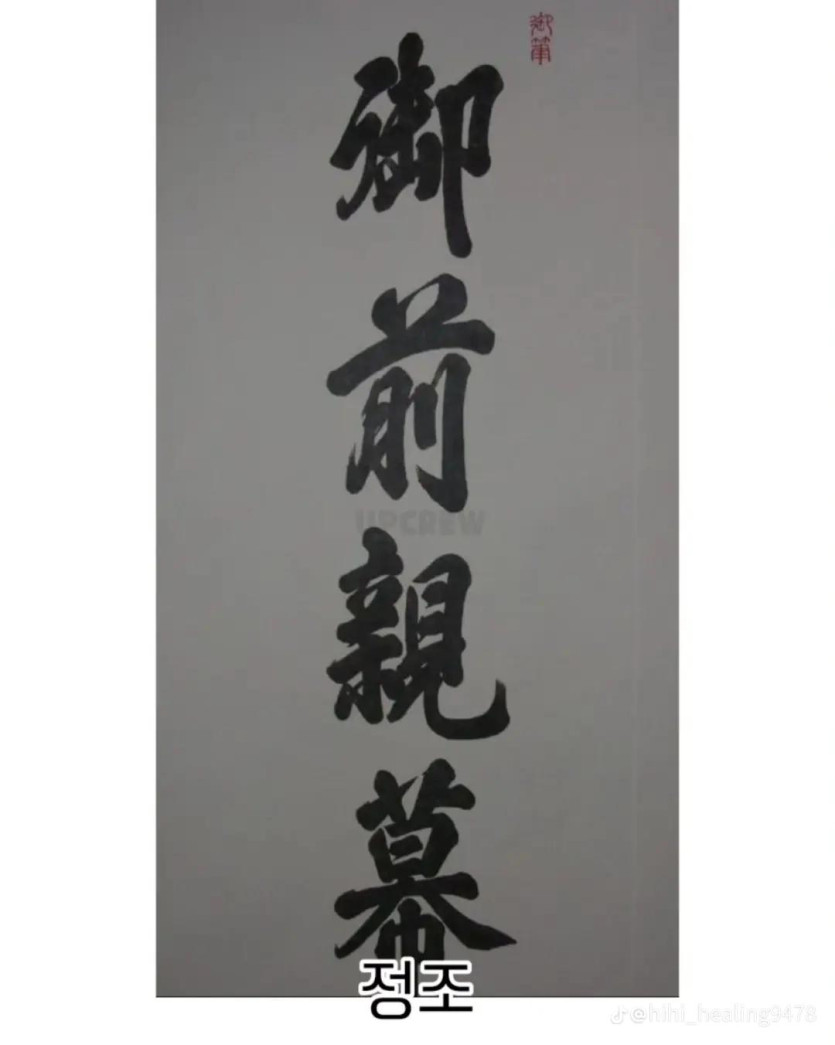 御筆
御前親幕
UPCREW
정조
@hihi_healing9478